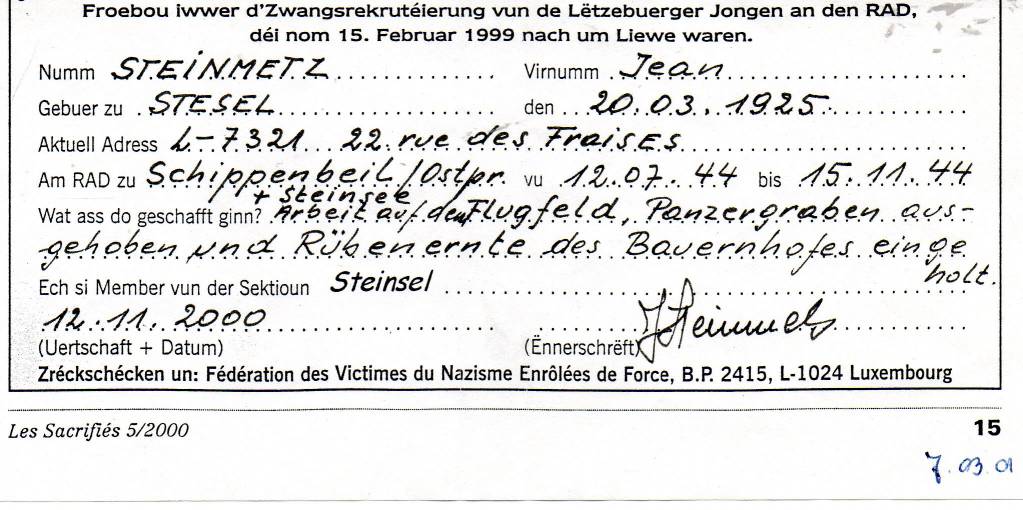 Froebou iwwer d'Zwangsrekrutéierung vun de Lëtzebuerger Jongen an den RAD,
déi nom 15. Februar 1999 nach um Liewe waren.
Numm STEINMETZ Virnumm Jean
Gebuer zu STESEL den 20.03.1925
Aktuell Adress L-7321 22.rue des FraisES
Am RAD zu Schippenbeil/Ostpr. vu 12.07.44 bis 15.11.44
+ Steinsee
Wat ass do geschafft ginn? Arbeit auf dem Flugfeld, Panzergraben aus-
gehoben und Rübenernte des Bauernhofes einge
holt.
Ech si Member vun der Sektioun Steinsel
12.11.2000 J Steinmetz
(Uertschaft + Datum) (Ënnerschrëft)
Zréckschécken un: Fédération des Victimes du Nazisme Enrôlées de Force, B.P. 2415, L-1024 Luxembourg
Les Sacrifiés 5/2000 15
7.03.01